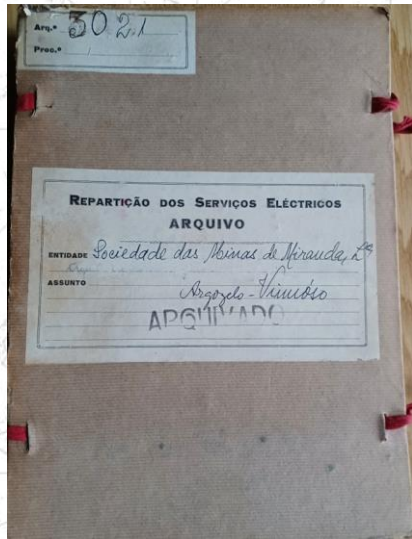 Arq.º 302.1
Proc.º
REPARTIÇÃO DOS SERVIÇOS ELÉCTRICOS
ARQUIVO
ENTIDADE Sociedade das Minas de Miranda, Lª
ASSUNTO
Argozelo - Vimióso
ARQUIVADO